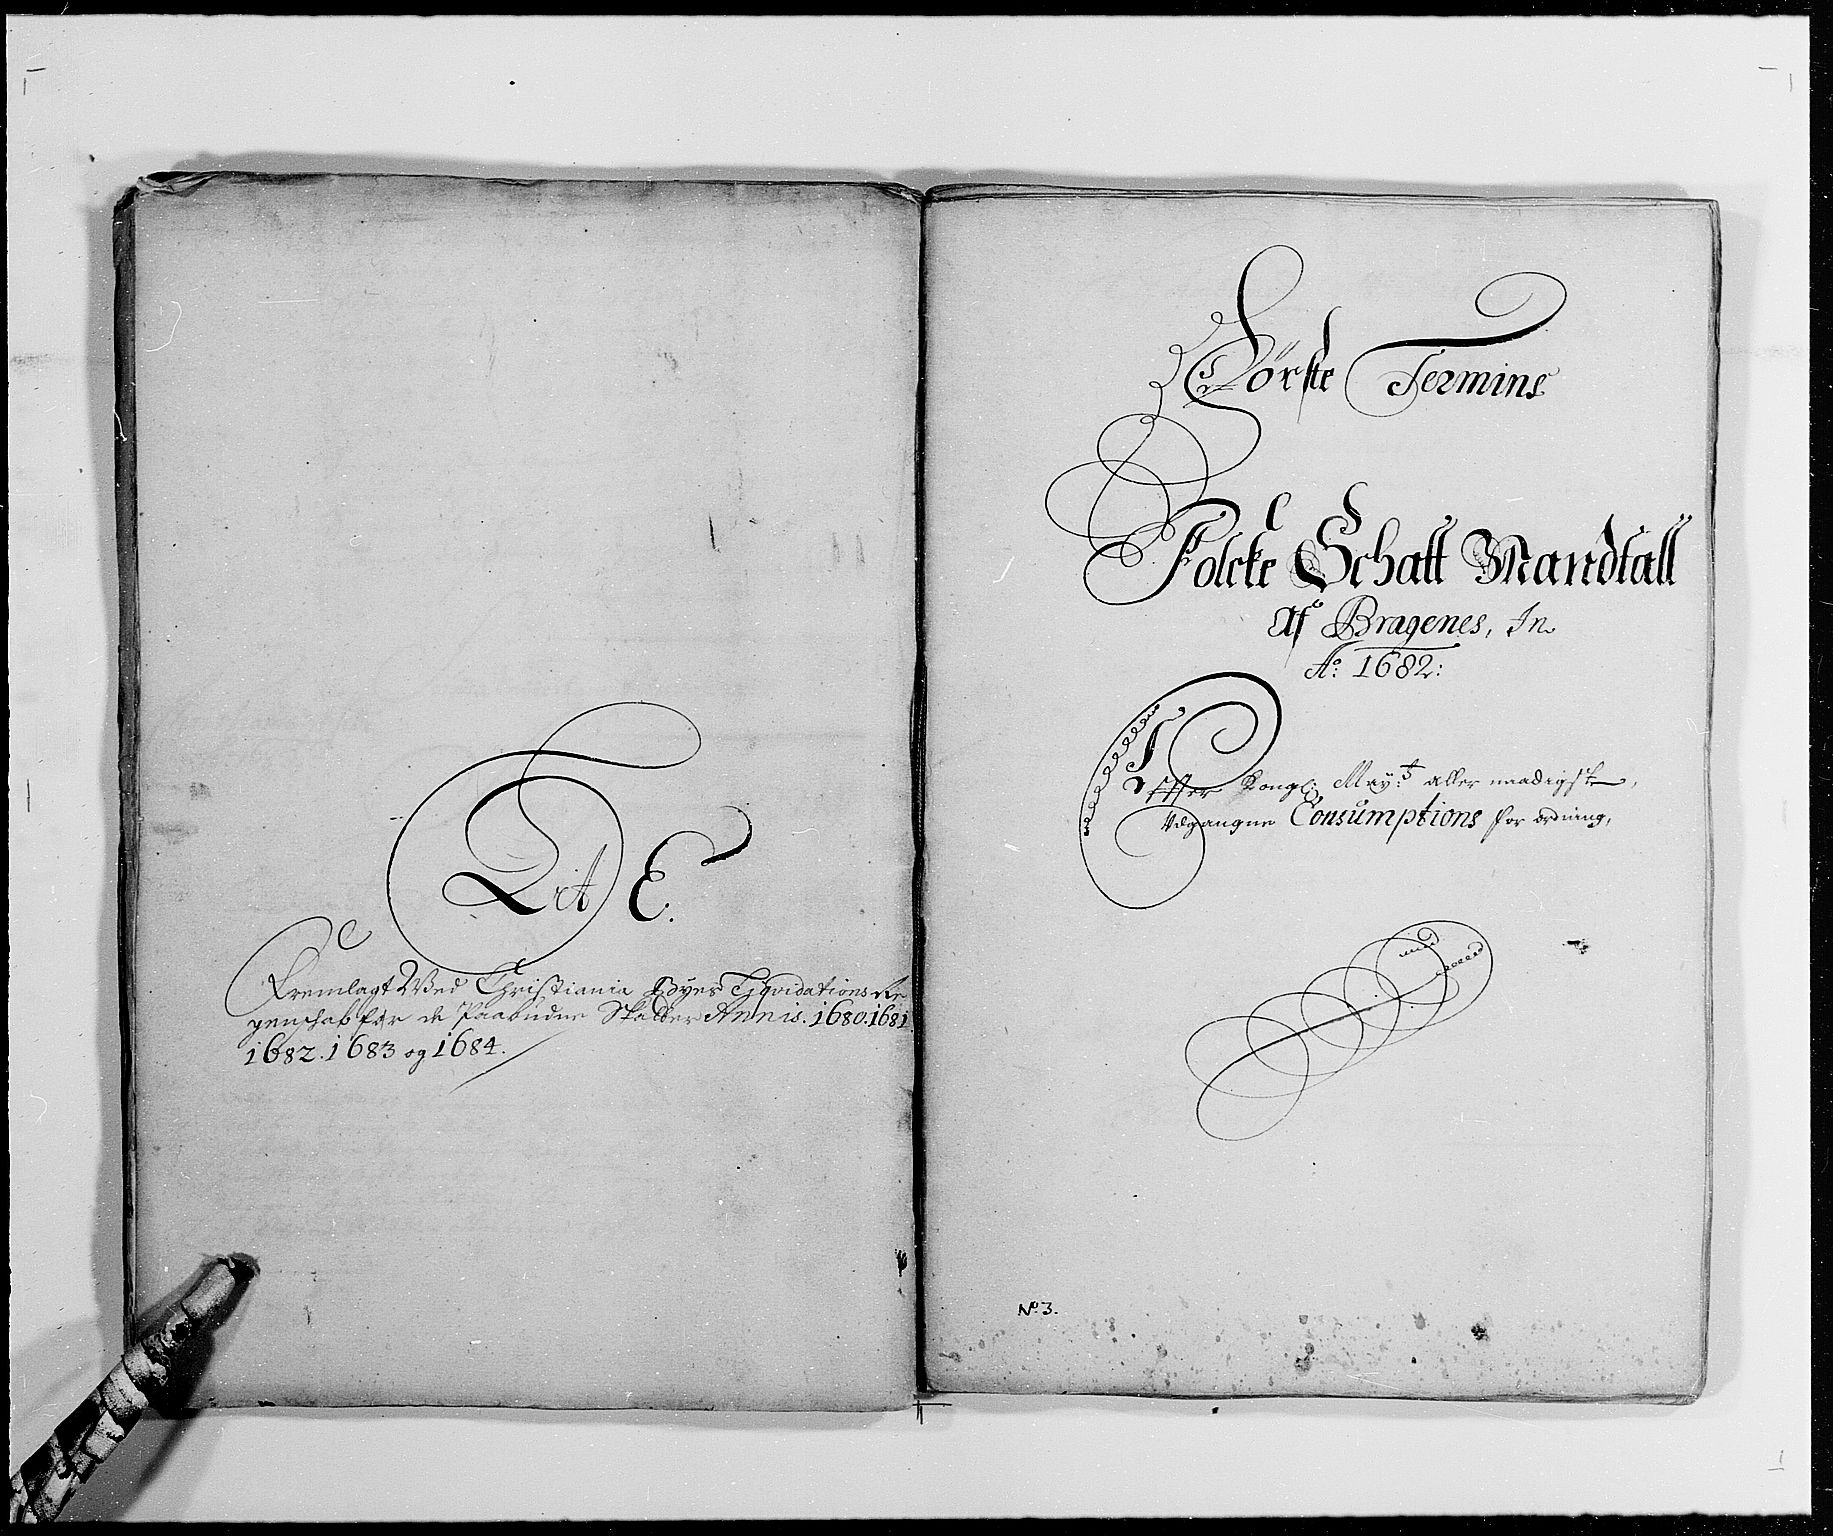 Lit E.
Fremlagt Wed Christiania Byes Liqvidations Re
genschab for de Paabudne Skatter Annis. 1680. 1681.
1682. 1683 og 1684.
Förste Termins
Folcke Schatt Mandtall
Af Bragenes, In
Ao: 1682:
Effter Kongl: Mayts: aller naadigste,
Udgangne Consumptions for ordning,
No. 3.